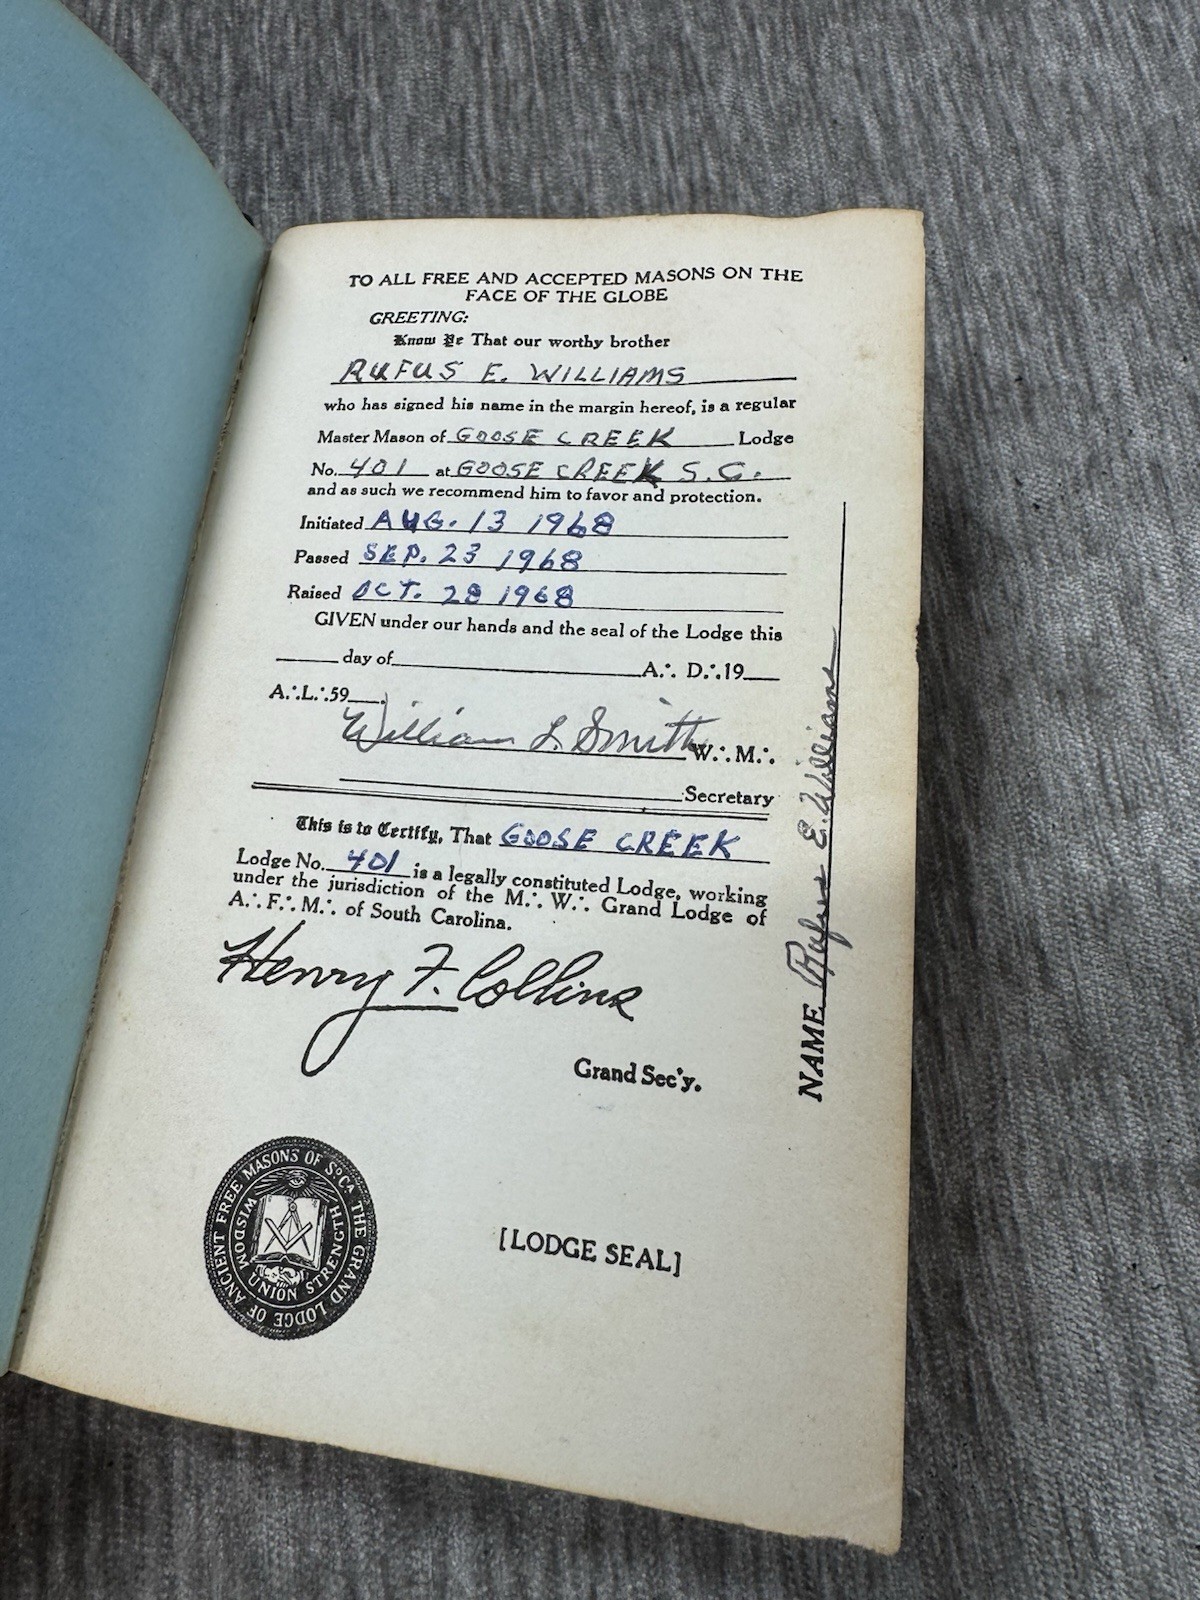 TO ALL FREE AND ACCEPTED MASONS ON THE
FACE OF THE GLOBE
GREETING:
Know Ye That our worthy brother
RUFUS E. WILLIAMS
who has signed his name in the margin hereof, is a regular
Master Mason of GOOSE CREEK Lodge
No. 401 at GOOSE CREEK S.C.
and as such we recommend him to favor and protection.
Initiated AUG. 13 1968
Passed SEP. 23 1968
Raised OCT. 28 1968
GIVEN under our hands and the seal of the Lodge this
____ day of____ A∴ D∴19__
A∴L∴59__.
William L. Smith W∴M∴
Secretary
This is to Certify, That GOOSE CREEK
Lodge No. 401 is a legally constituted Lodge, working
under the jurisdiction of the M∴ W∴ Grand Lodge of
A∴ F∴ M∴ of South Carolina.
Henry F. Collins
Grand Sec'y.
NAME Rufus E. Williams
THE GRAND LODGE OF ANCIENT FREE MASONS OF SO CA
WISDOM UNION STRENGTH
[LODGE SEAL]